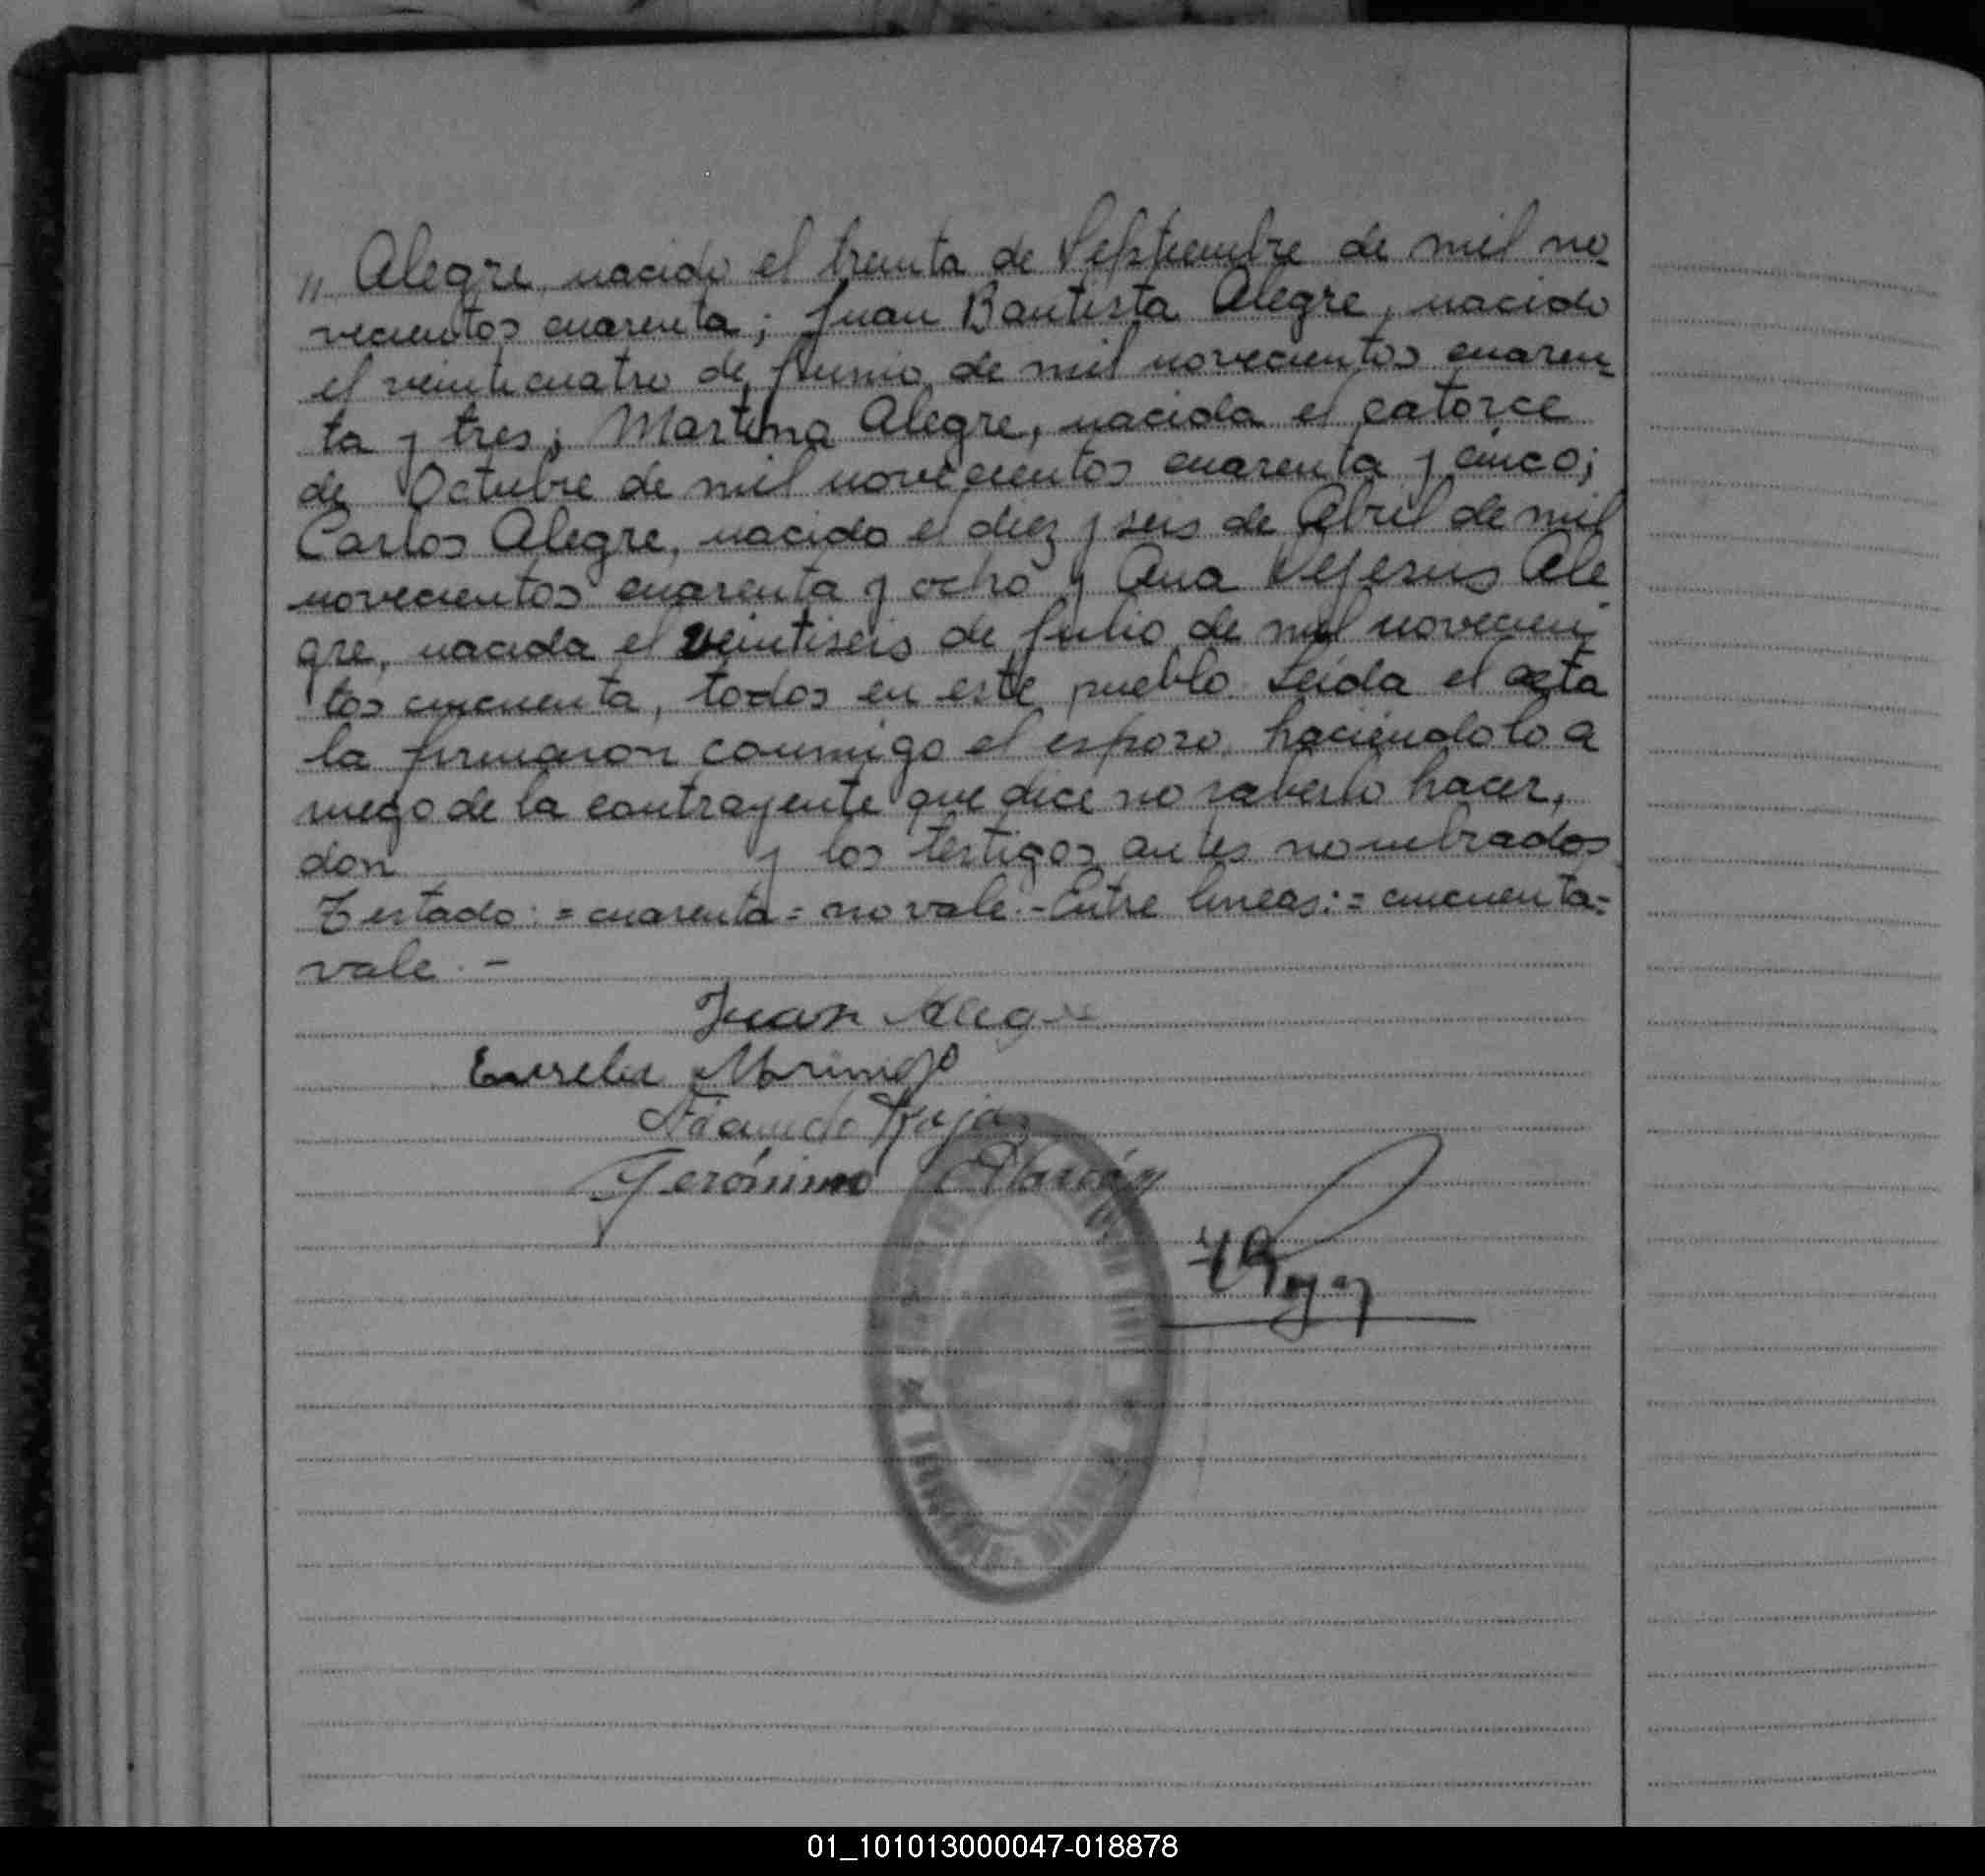 „ Alegre, nacido el treinta de Septiembre de mil no-
vecientos cuarenta; Juan Bautista Alegre, nacido
el veinticuatro de Junio de mil novecientos cuaren-
ta y tres; Martina Alegre, nacida el catorce
de Octubre de mil novecientos cuarenta y cinco;
Carlos Alegre, nacido el diez y seis de Abril de mil
novecientos cuarenta y ocho y Ana Dejesus Ale-
gre, nacida el veintiseis de Julio de mil novecien-
tos cincuenta, todos en este pueblo. Leida el acta
la firmaron conmigo el esposo, haciéndolo a
ruego de la contrayente que dice no saberlo hacer,
don y los testigos antes nombrados.
Testado: = cuarenta = no vale. - Entre lineas: = cincuenta =
vale. -
Juan Alegre
Gerónimo Alarcón
01_101013000047-018878